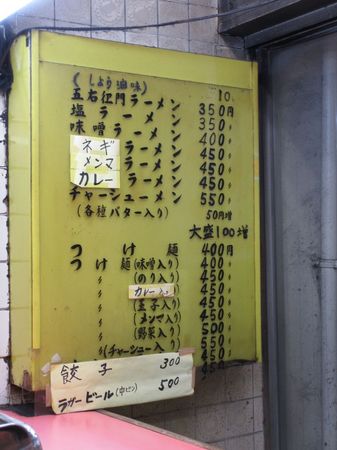 (しょう油味)
五右ヱ門ラーメン 350円
塩ラーメン 350〃
味噌ラーメン 400〃
ネギラーメン 450〃
メンマラーメン 450〃
カレーラーメン 450〃
チャーシューメン 550〃
(各種バター入り) 50円増
大盛100増
つけ麺 400円
つけ麺(味噌入り) 400〃
〃(のり入り) 450〃
カレー入り 450〃
〃(玉子入り) 450〃
〃(メンマ入り) 450〃
〃(野菜入り) 500
〃(チャーシュー入り) 550
450
餃子 300
ラガービール(中ビン) 500